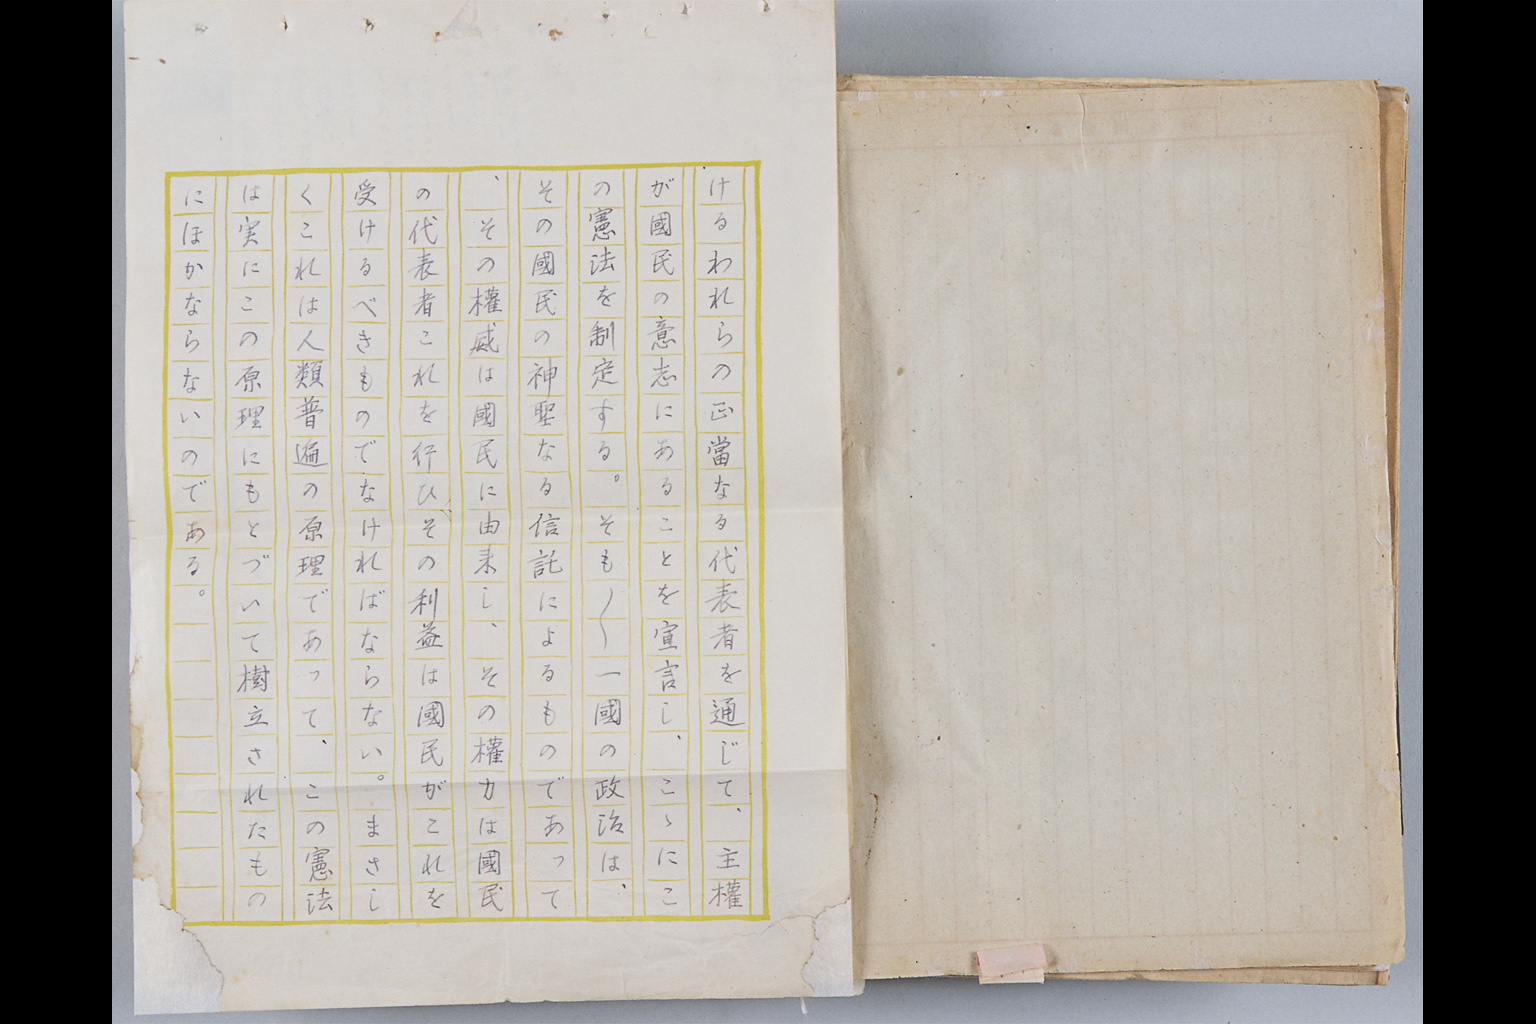 けるわれらの正當なる代表者を通じて、主權
が國民の意志にあることを宣言し、こゝにこ
の憲法を制定する。そも〳〵一國の政治は、
その國民の神聖なる信託によるものであって
、その權威は國民に由来し、その權力は國民
の代表者これを行ひ、その利益は國民がこれを
受けるべきものでなければならない。まさし
くこれは人類普遍の原理であって、この憲法
は実にこの原理にもとづいて樹立されたもの
にほかならないのである。